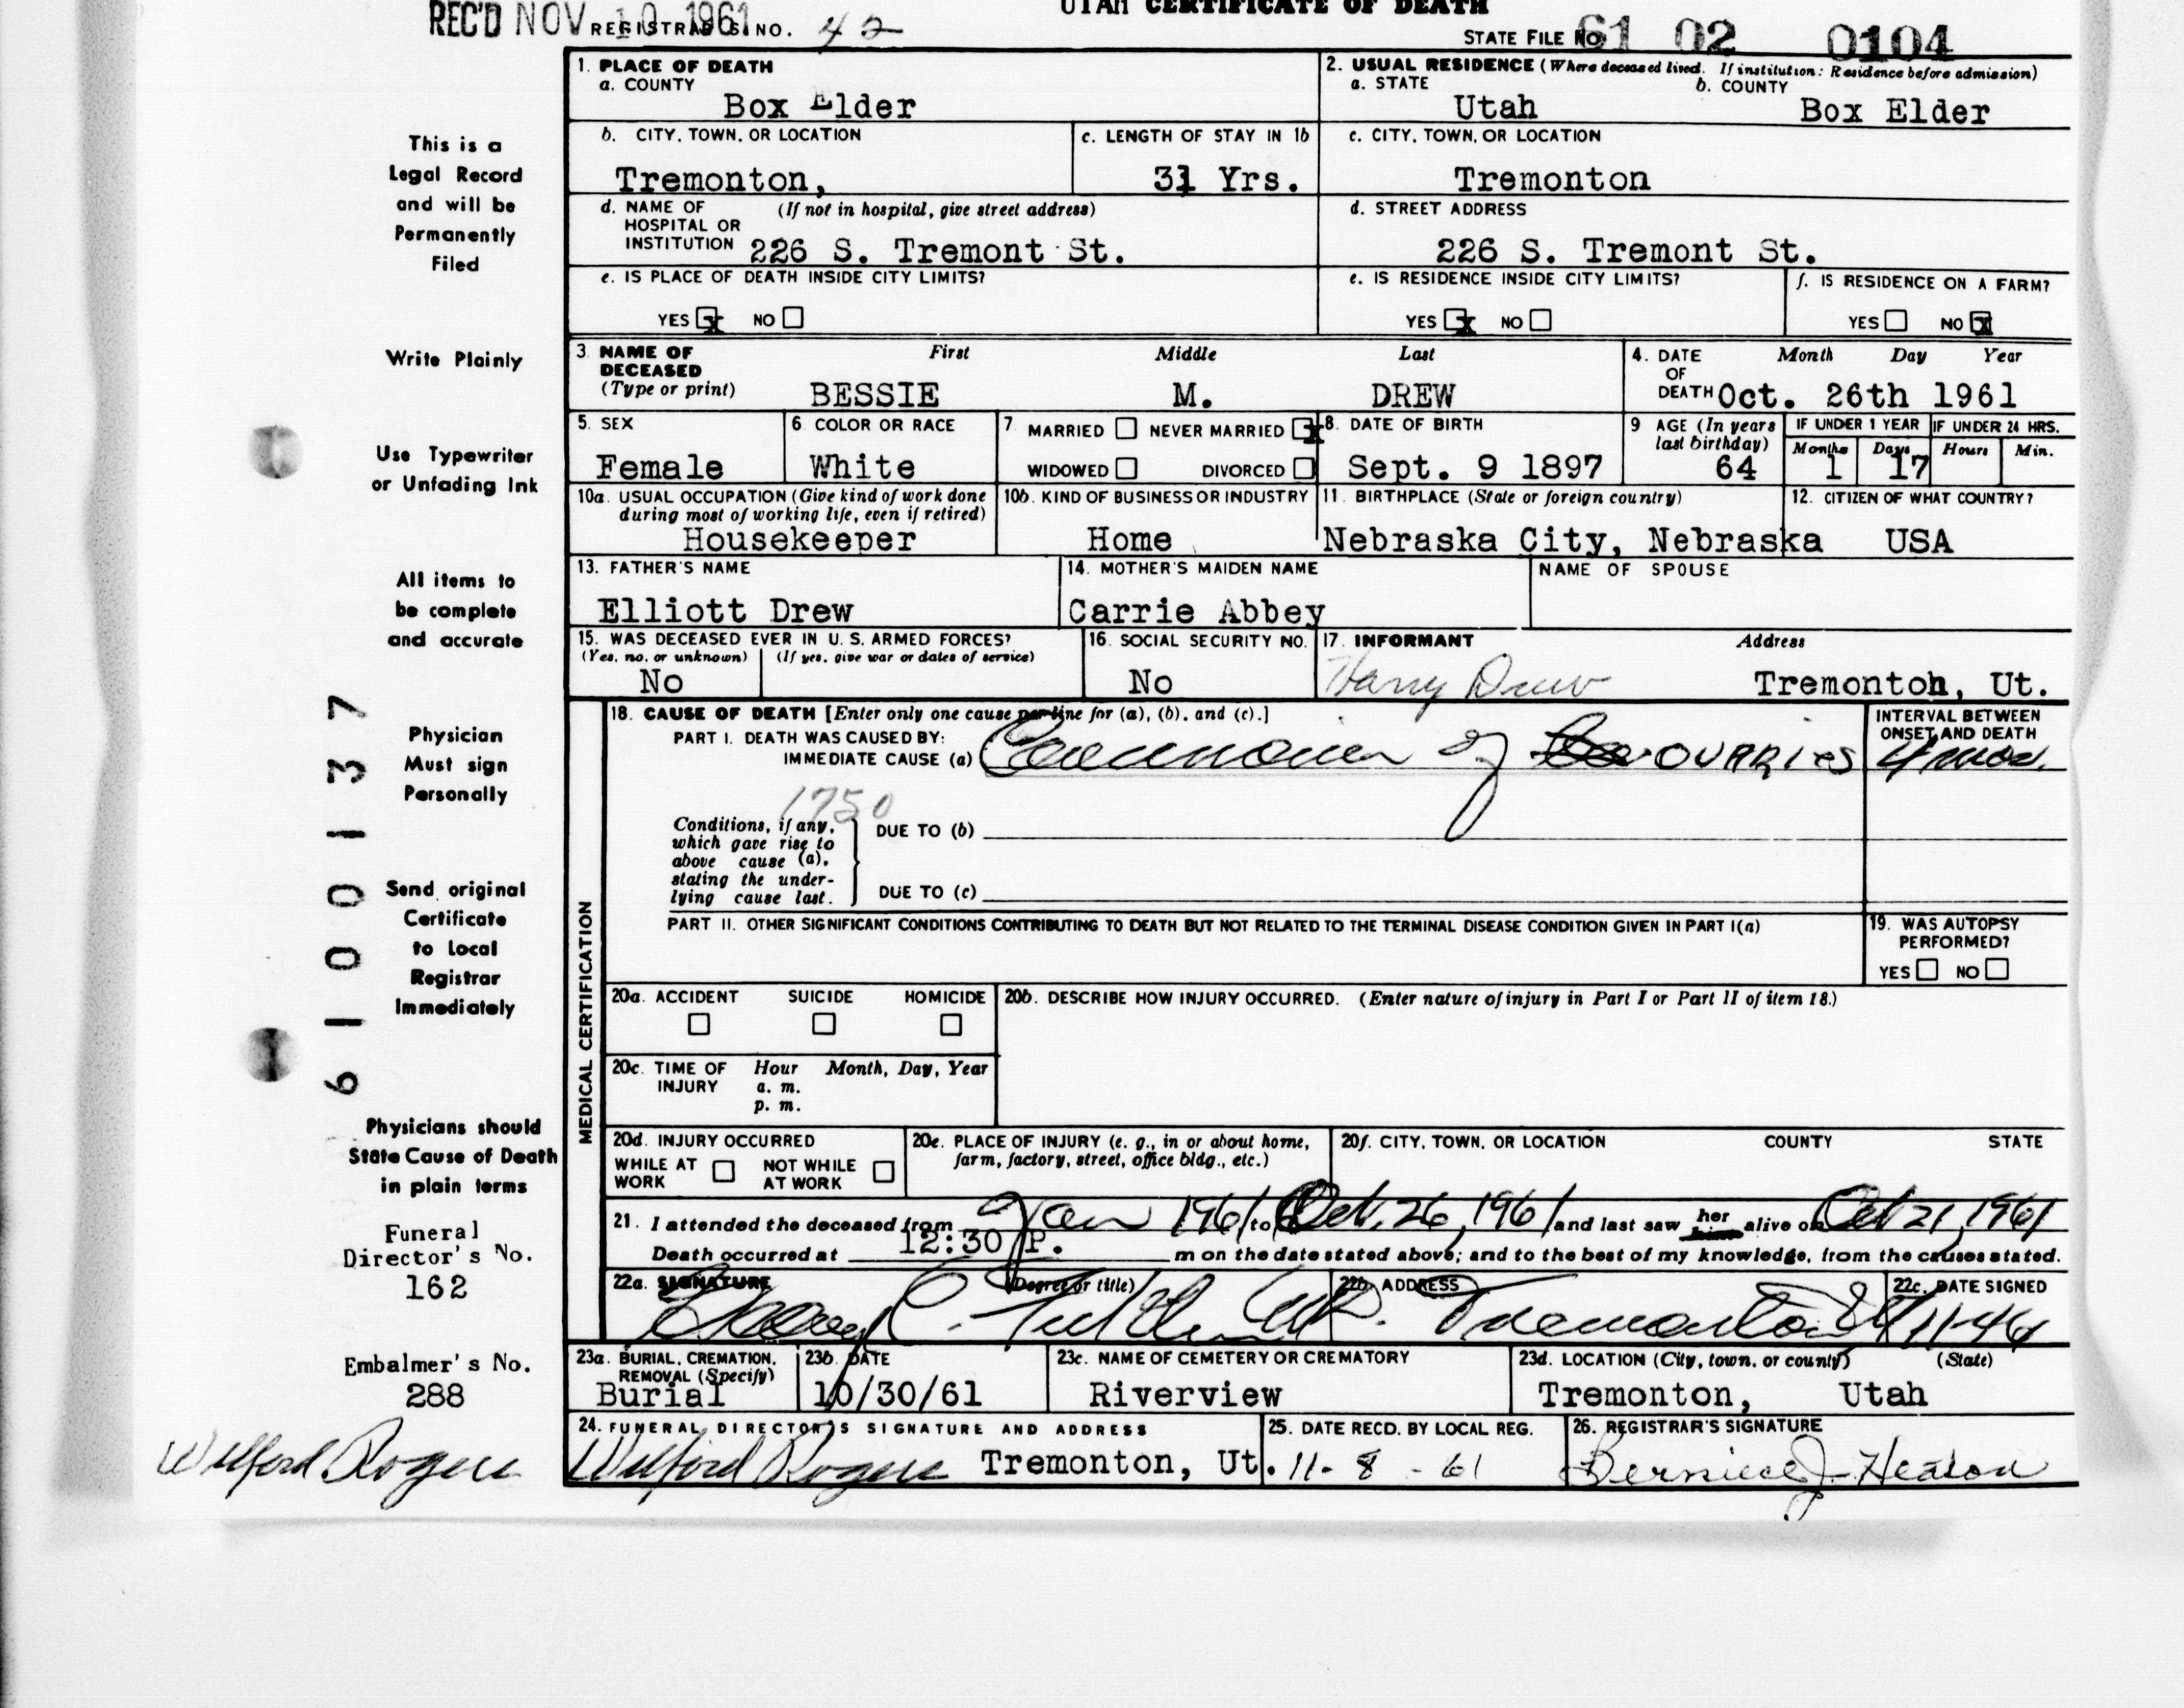 UTAH CERTIFICATE OF DEATH
REC'D NOV 10 1961 REGISTRAR'S NO. 42
STATE FILE NO. 61 02 0104
1. PLACE OF DEATH
a. COUNTY
Box Elder
2. USUAL RESIDENCE (Where deceased lived. If institution: Residence before admission)
a. STATE b. COUNTY
Utah Box Elder
b. CITY, TOWN, OR LOCATION c. LENGTH OF STAY IN 1b
Tremonton, 31 Yrs.
c. CITY, TOWN, OR LOCATION
Tremonton
d. NAME OF HOSPITAL OR INSTITUTION (If not in hospital, give street address)
226 S. Tremont St.
d. STREET ADDRESS
226 S. Tremont St.
e. IS PLACE OF DEATH INSIDE CITY LIMITS?
YES x NO
e. IS RESIDENCE INSIDE CITY LIMITS?
YES x NO
f. IS RESIDENCE ON A FARM?
YES NO x
3. NAME OF DECEASED (Type or print) First Middle Last
BESSIE M. DREW
4. DATE OF DEATH Month Day Year
Oct. 26th 1961
5. SEX
Female
6. COLOR OR RACE
White
7. MARRIED NEVER MARRIED x
WIDOWED DIVORCED
8. DATE OF BIRTH
Sept. 9 1897
9 AGE (In years last birthday)
64
IF UNDER 1 YEAR IF UNDER 24 HRS.
Months Days Hours Min.
1 17
10a. USUAL OCCUPATION (Give kind of work done during most of working life, even if retired)
Housekeeper
10b. KIND OF BUSINESS OR INDUSTRY
Home
11. BIRTHPLACE (State or foreign country)
Nebraska City, Nebraska
12. CITIZEN OF WHAT COUNTRY?
USA
13. FATHER'S NAME
Elliott Drew
14. MOTHER'S MAIDEN NAME
Carrie Abbey
NAME OF SPOUSE
15. WAS DECEASED EVER IN U. S. ARMED FORCES?
(Yes, no, or unknown) (If yes, give war or dates of service)
No
16. SOCIAL SECURITY NO.
No
17. INFORMANT Address
Harry Drew Tremonton, Ut.
18. CAUSE OF DEATH [Enter only one cause per line for (a), (b), and (c).]
PART I. DEATH WAS CAUSED BY:
IMMEDIATE CAUSE (a) of OVARIES
INTERVAL BETWEEN ONSET AND DEATH
4 mos.
1750
Conditions, if any, which gave rise to above cause (a), stating the underlying cause last.
DUE TO (b)
DUE TO (c)
PART II. OTHER SIGNIFICANT CONDITIONS CONTRIBUTING TO DEATH BUT NOT RELATED TO THE TERMINAL DISEASE CONDITION GIVEN IN PART I(a)
19. WAS AUTOPSY PERFORMED?
YES NO
MEDICAL CERTIFICATION
20a. ACCIDENT SUICIDE HOMICIDE
20b. DESCRIBE HOW INJURY OCCURRED. (Enter nature of injury in Part I or Part II of item 18.)
20c. TIME OF INJURY Hour Month, Day, Year
a. m.
p. m.
20d. INJURY OCCURRED
WHILE AT WORK NOT WHILE AT WORK
20e. PLACE OF INJURY (e. g., in or about home, farm, factory, street, office bldg., etc.)
20f. CITY, TOWN, OR LOCATION COUNTY STATE
21. I attended the deceased from Jan 1961 to Oct. 26, 1961 and last saw her him alive on Oct 21, 1961
Death occurred at 12:30 P. m on the date stated above; and to the best of my knowledge, from the causes stated.
22a. SIGNATURE (Degree or title)
22b. ADDRESS
Tremonton
22c. DATE SIGNED
23a. BURIAL, CREMATION, REMOVAL (Specify)
Burial
23b. DATE
10/30/61
23c. NAME OF CEMETERY OR CREMATORY
Riverview
23d. LOCATION (City, town, or county) (State)
Tremonton, Utah
24. FUNERAL DIRECTOR'S SIGNATURE AND ADDRESS
Wilford Rogers Tremonton, Ut.
25. DATE RECD. BY LOCAL REG.
11-8-61
26. REGISTRAR'S SIGNATURE
Berniece J. Heaton
This is a
Legal Record
and will be
Permanently
Filed
Write Plainly
Use Typewriter
or Unfading Ink
All items to
be complete
and accurate
Physician
Must sign
Personally
Send original
Certificate
to Local
Registrar
Immediately
Physicians should
State Cause of Death
in plain terms
6100137
Funeral
Director's No.
162
Embalmer's No.
288
Wilford Rogers